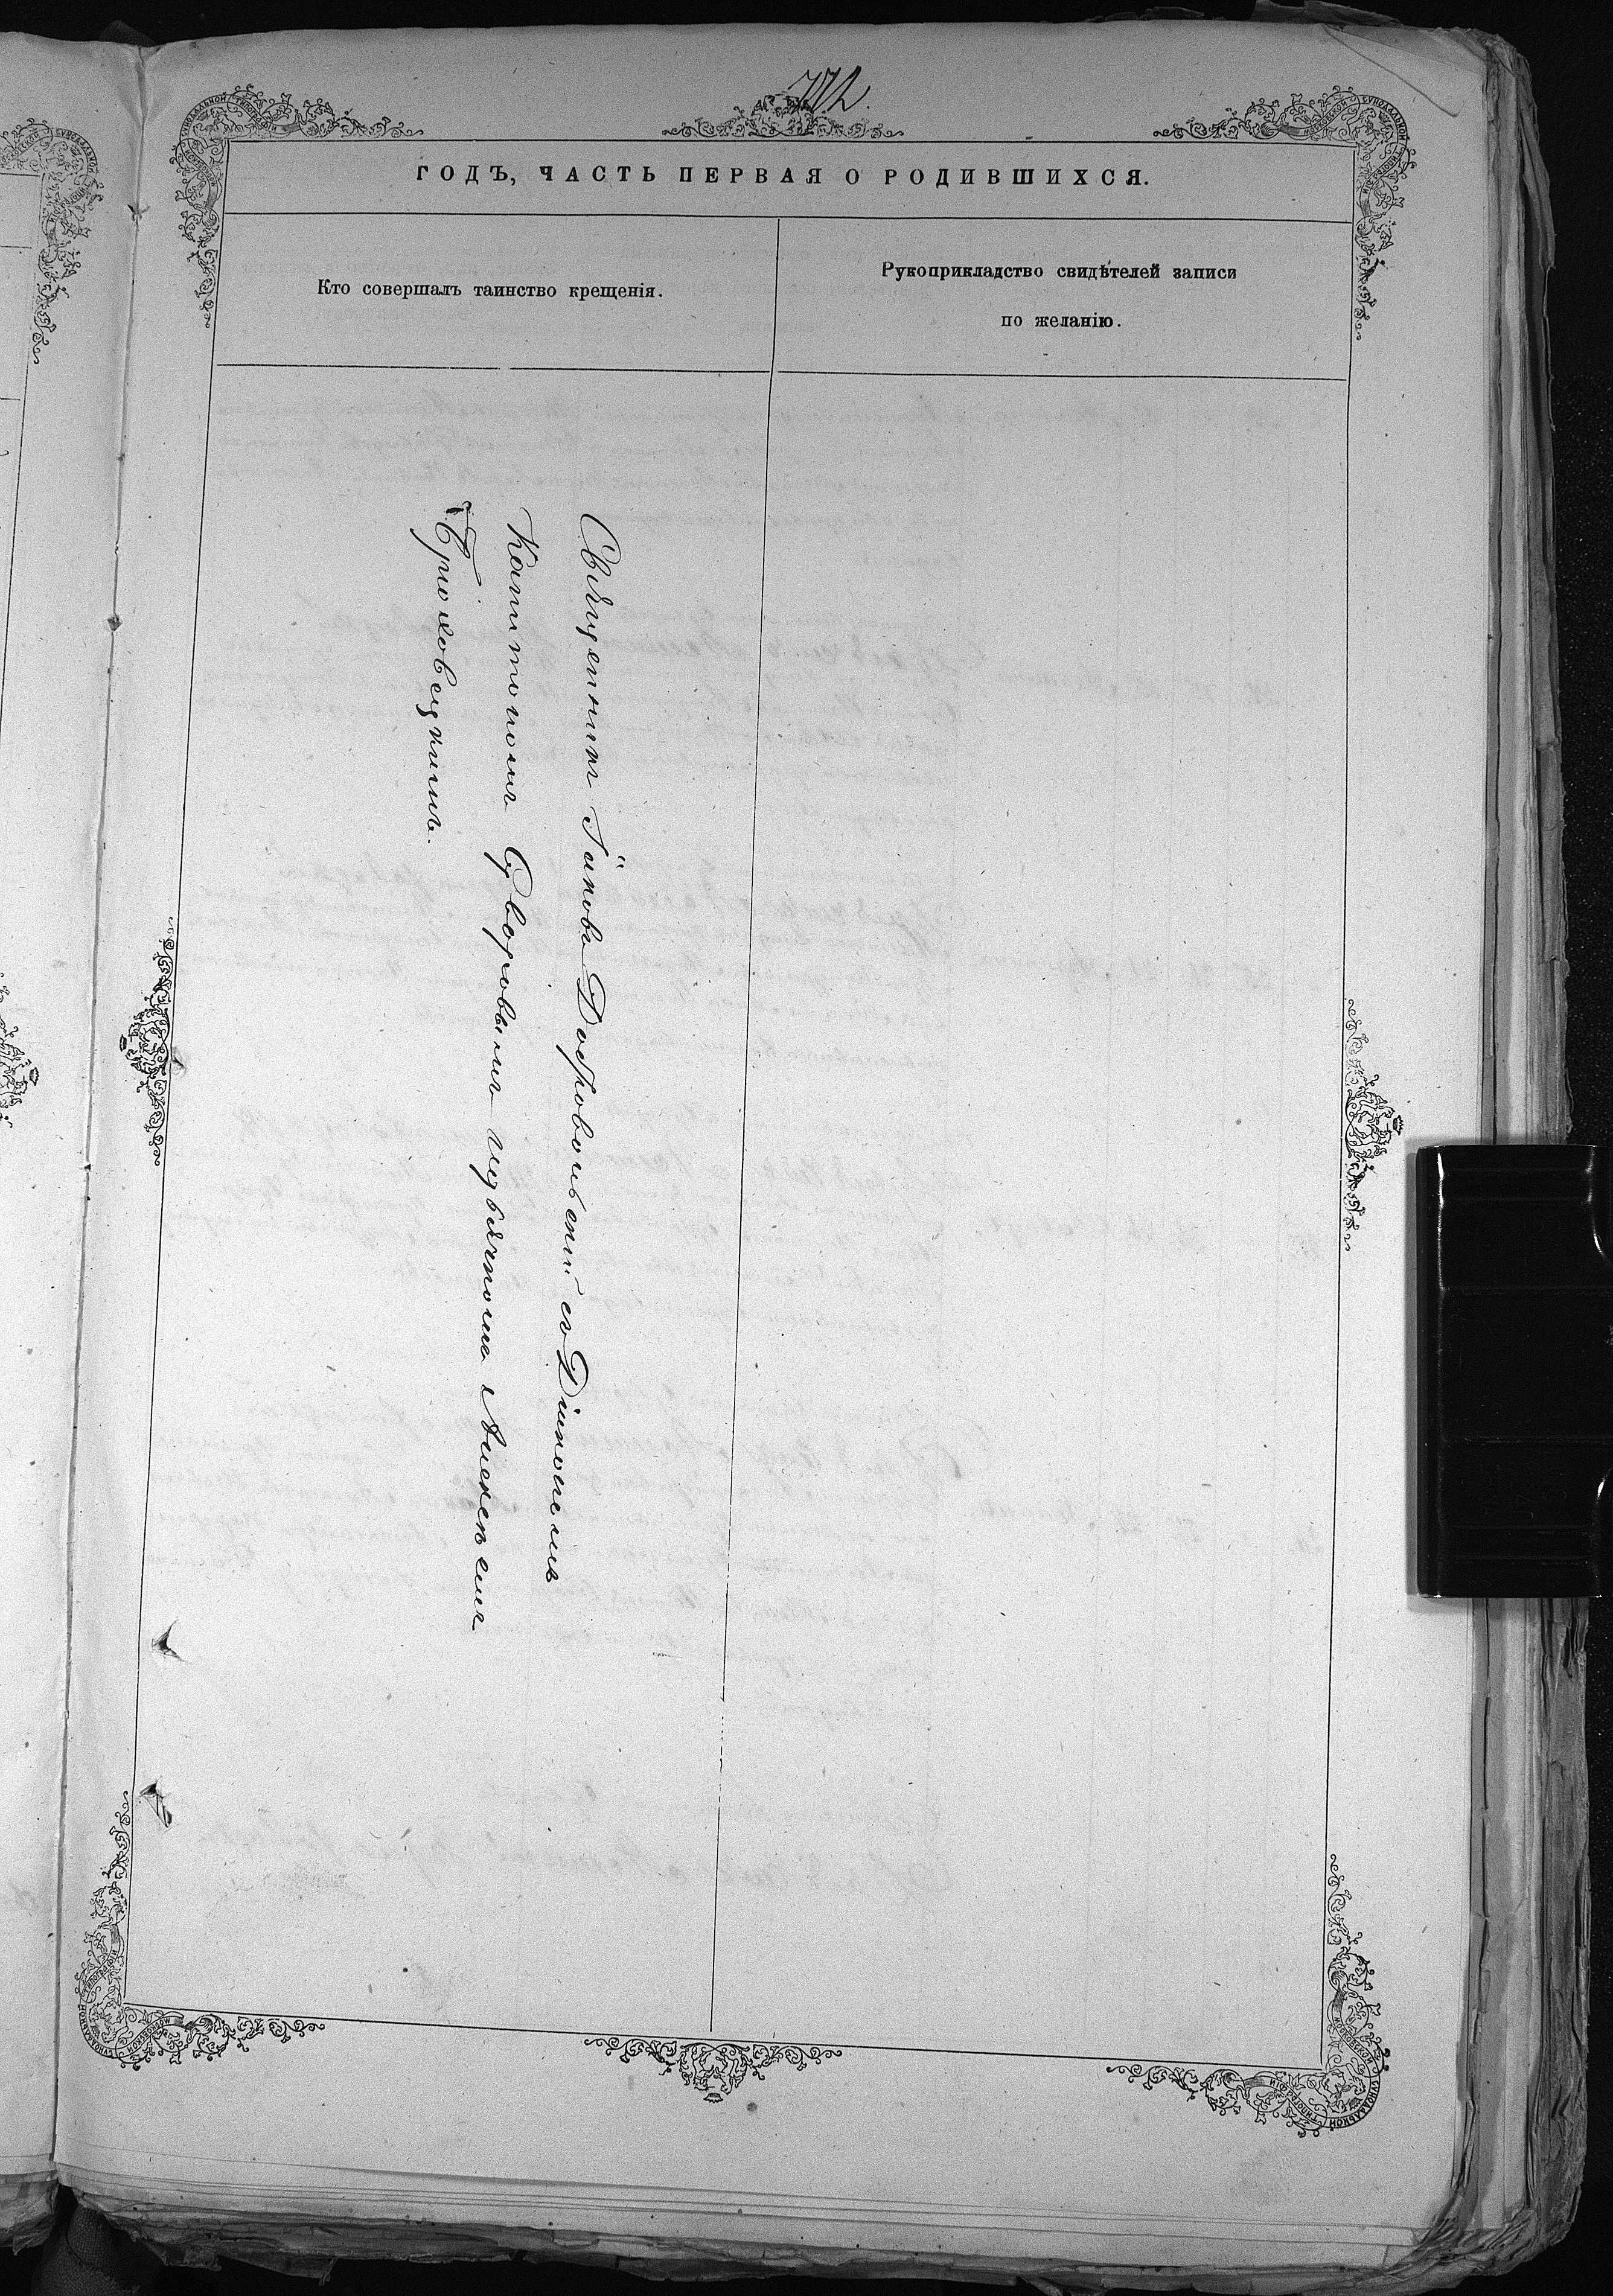 772.
ГОДЪ, ЧАСТЬ ПЕРВАЯ О РОДИВШИХСЯ.
Кто совершалъ таинство крещенія.
Рукоприкладство свидѣтелей записи
по желанію.
Священникъ Іаковъ Добровольскій съ Діакономъ
Капитономъ Суворовымъ и дьячкомъ Алексѣемъ
Брюховецкимъ.